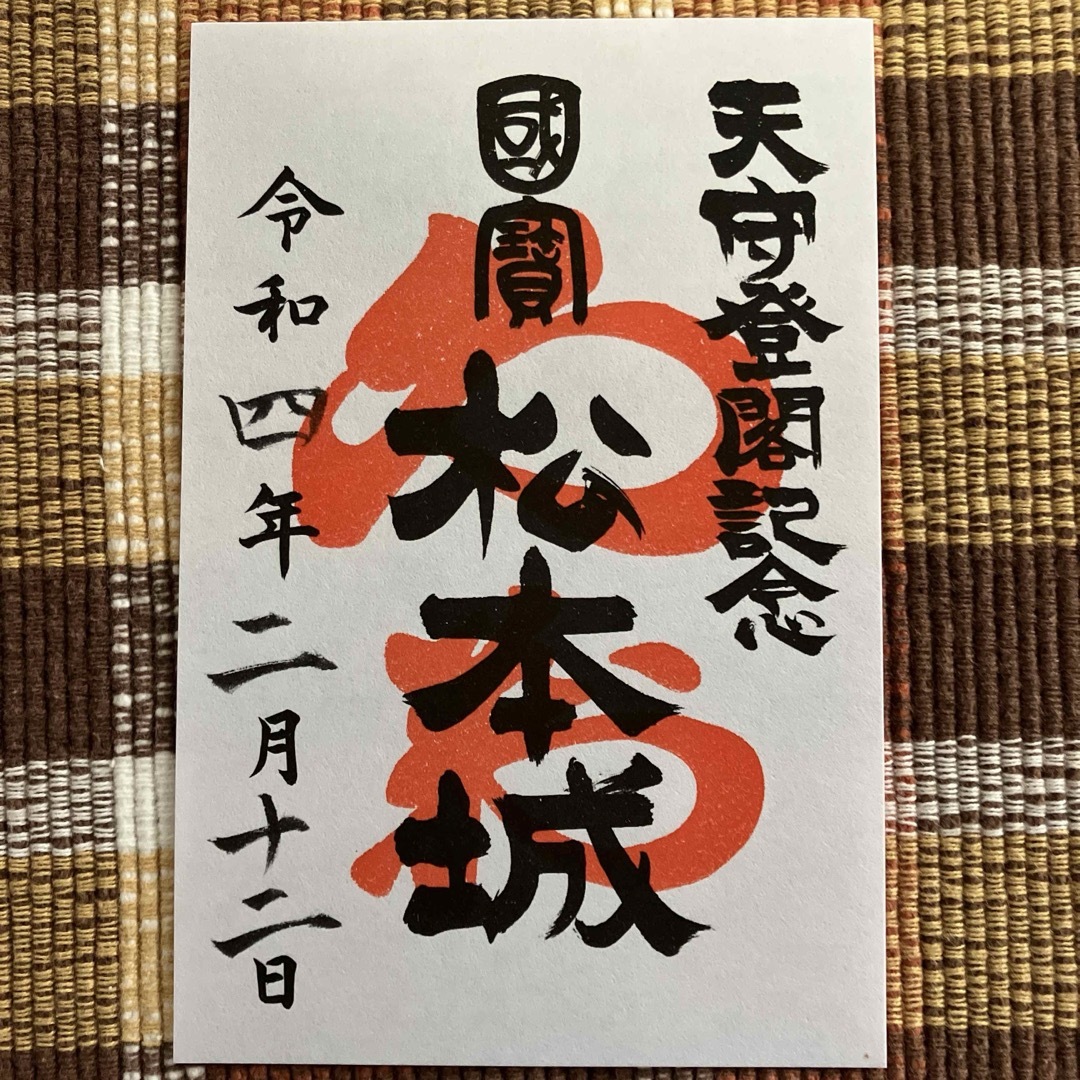 天守登閣記念
國寶
松本城
令和四年二月十二日